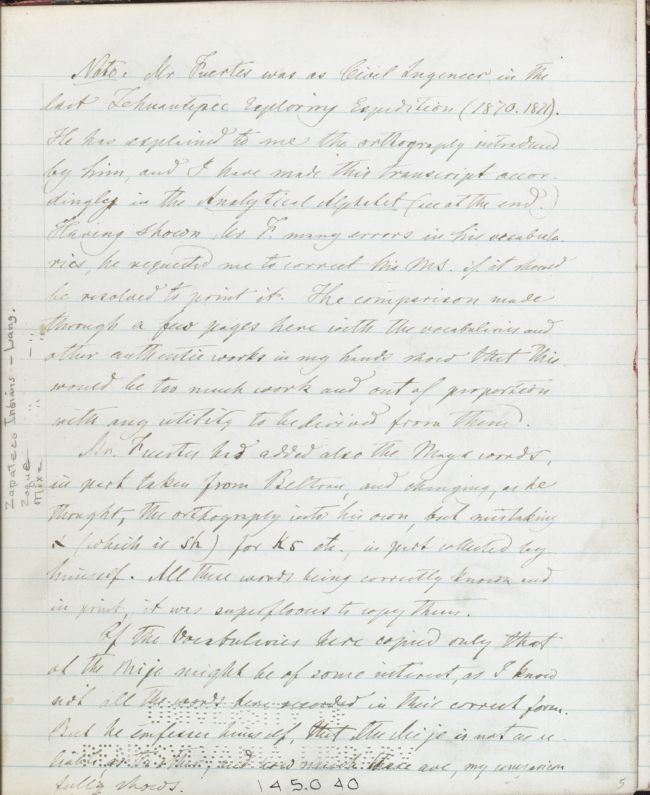 Note. Mr Fuertes was as Civil Ingeneer in the
last Tehuantepec Exploring Expedition (1870.1871).
He has explained to me the orthography introduced
by him, and I have made this transcript accor-
dingly in the Analytical Alphabet (see at the end.)
Having shown Mr F. many errors in his vocabula-
ries, he requested me to correct his MS. if it should
be resolved to print it. The comparison made
through a few pages here with the vocabularies and
other authentic works in my hands shows that this
would be too much work and out of proportion
with any utility to be derived from them.
Mr. Fuertes had added also the Maya words,
in part taken from Beltran, and changing, as he
thought, the orthography into his own, but mistaking
x (which is sh) for ks etc., in part collected by
himself. All these words being correctly known and
in print, it was superfluous to copy them.
Of the Vocabularies here copied only that
of the Mije might be of some interest, as I know
not all the words here recorded in their correct form.
But he confesses himself, that the Mije is not as re-
liable as the others, and how much these are, my comparison
fully shows.
Zapoteco Indians - Lang.
Zoque " - "
Mixe " "
145040
5